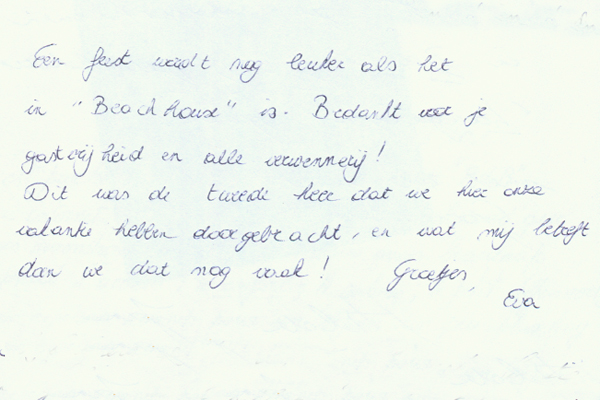 Een feest wordt nog leuker als het
in "Beach house" is. Bedankt voor je
gastvrijheid en alle verwennerij!
Dit was de tweede keer dat we hier onze
vakantie hebben doorgebracht, en wat mij betreft
doen we dat nog vaak! Groetjes,
Eva